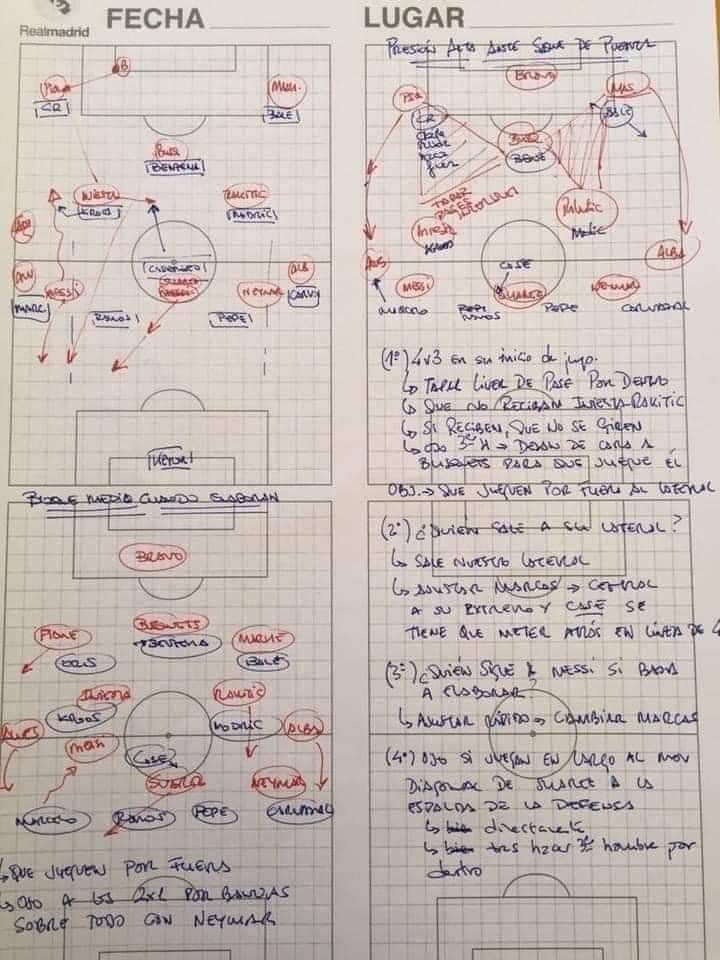 Realmadrid
FECHA
LUGAR
B
CR
BALE
BENZEMA
INIESTA
RAKITIC
KROOS
MODRIC
CASEMIRO
MESSI
NEYMAR
ALB
MARC.
CARV.
RAMOS
PEPE
KEYLOR
PRESIÓN ALTA ANTE SAQUE DE PUERTA
BRAVO
PIQ
MAS
CR
BALE
BUSQ
BENZ
TAPAR
PASES
INTERIORES
INIESTA
KROOS
Rakitic
Modric
ALBA
CASE
MESSI
SUAREZ
NEYMAR
MARCELO
RAMOS
PEPE
CARVAJAL
(1º) 4v3 en su inicio de juego.
↳ TAPAR LINEA DE PASE POR DENTRO
↳ QUE NO RECIBAN INIESTA-RAKITIC
↳ SI RECIBEN, QUE NO SE GIREN
↳ OJO 3er H → DEJAN DE CARA A
BUSQUETS PARA QUE JUEGUE ÉL
OBJ. → QUE JUEGUEN POR FUERA AL LATERAL
(2º) ¿QUIÉN SALE A SU LATERAL?
↳ SALE NUESTRO LATERAL
↳ AJUSTAR MARCAS → CENTRAL
A SU EXTREMO Y CASE SE
TIENE QUE METER ATRÁS EN LÍNEA DE 4
(3º) ¿QUIÉN SIGUE A MESSI SI BAJA
A ELABORAR?
↳ AJUSTAR RÁPIDO → CAMBIAR MARCAS
(4º) OJO SI JUEGAN EN LARGO AL MOV
DIAGONAL DE SUAREZ A LA
ESPALDA DE LA DEFENSA
↳ bien directamente
↳ bien tras hzar 3er hombre por
dentro
BLOQUE MEDIO CUANDO ELABORAN
BRAVO
PIQUE
BUSQUETS
MATHIE
CRIS
BENZEMA
BALE
INIESTA
RAKITIC
KROOS
MODRIC
ALVES
ALBA
MESSI
CASE
SUAREZ
NEYMAR
MARCELO
RAMOS
PEPE
CARVAJAL
↳ QUE JUEGUEN POR FUERA
↳ OJO A LOS 2x1 POR BANDAS
SOBRE TODO CON NEYMAR